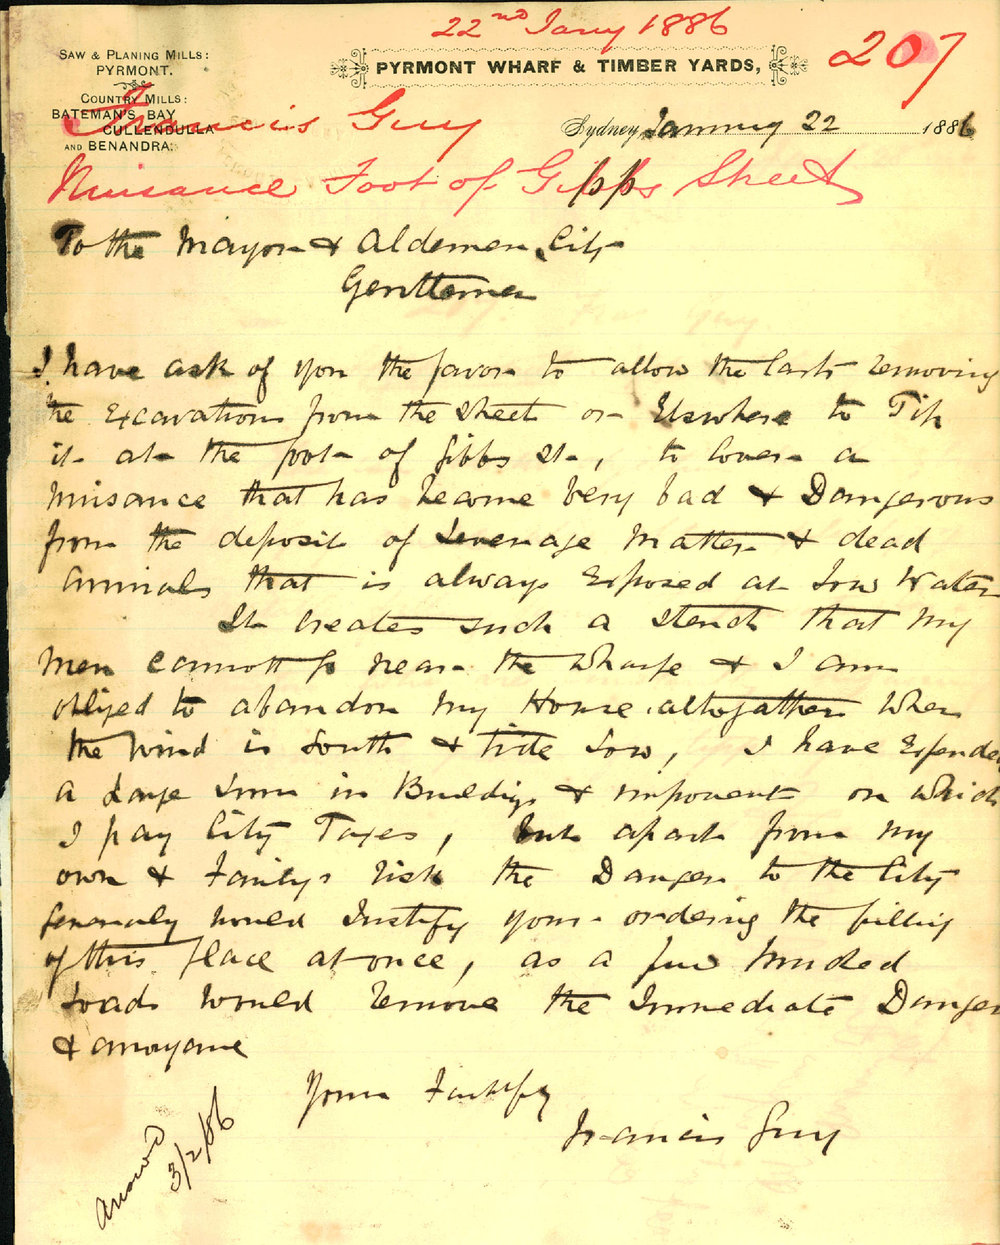 22nd Jany 1886
207
SAW & PLANING MILLS:
PYRMONT.
COUNTRY MILLS:
BATEMAN'S BAY
CULLENDULLA
AND BENANDRA.
PYRMONT WHARF & TIMBER YARDS,
Francis Guy
Sydney, January 22 1886
Nuisance Foot of Gipps Street
To the Mayor & Aldermen City
Gentlemen
I have ask of you the favor to allow the Carts removing
the Excavations from the Street or Elswhere to Tip
it at the foot of Gibbs St, to Cover a
Nuisance that has become very bad & Dangerous
from the deposit of Severage Matter & dead
Animals that is always Exposed at Low Water
It Creates such a Stench that my
Men Cannott go near the Wharfe & I am
obliged to abandon my House altogather when
the Wind is South & tide Low, I have Expended
a Large Sum in Buildings & on which
I pay City Taxes, but apart from my
own & Familys risk the Danger to the City
generaly would Justify your ordering the filling
of this place at once, as a few Hundred
Loads would remove the Immediate Danger
& anoyance
Yours Faithfy
Francis Guy
Answd
3/2/86